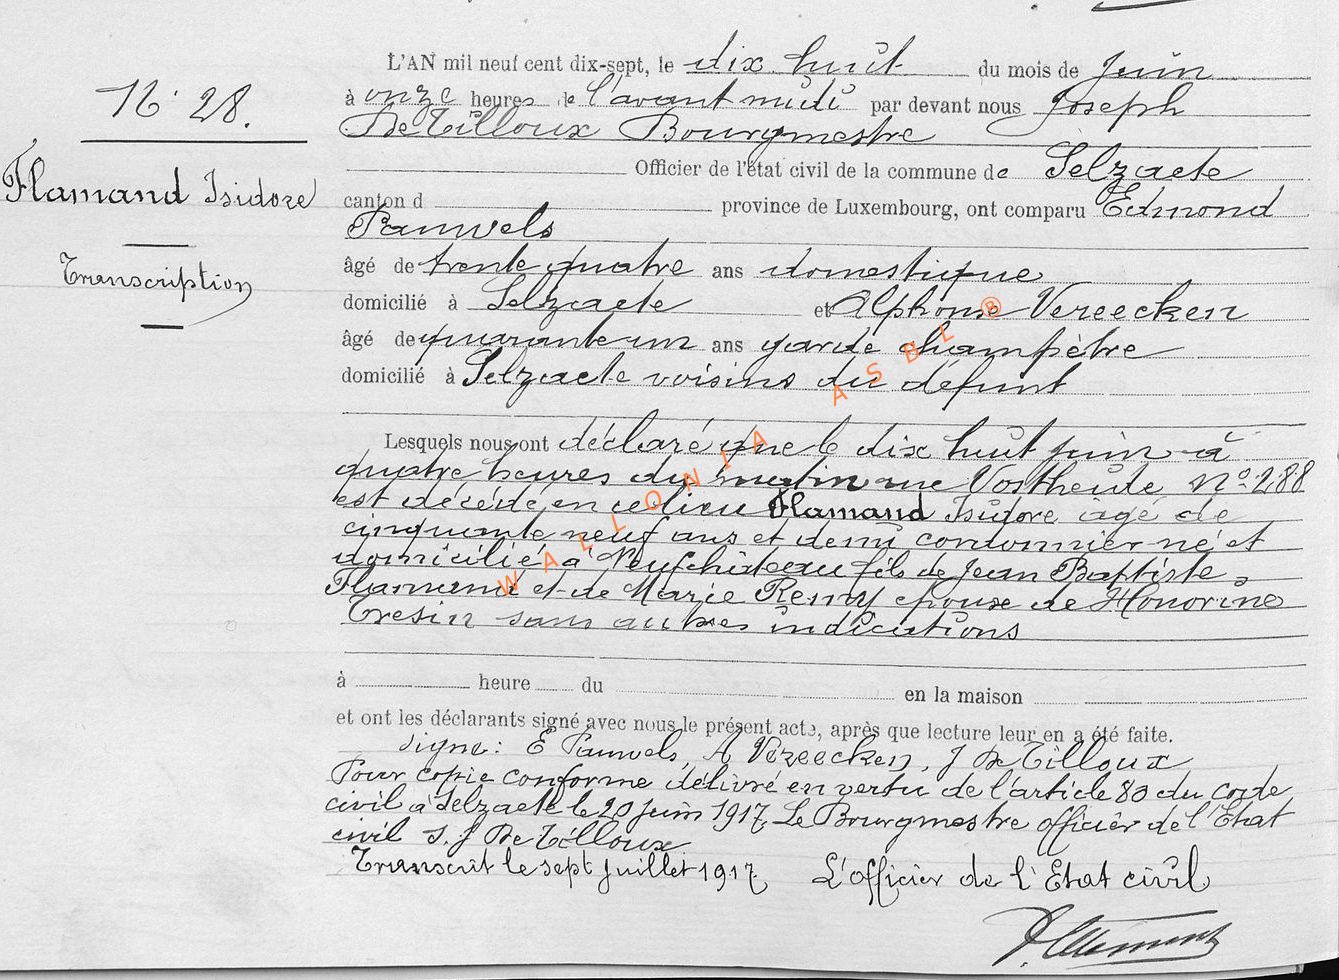 N° 28.
Flamand Isidore
Transcription
L'AN mil neuf cent dix-sept, le dix huit du mois de Juin
à onze heures de l'avant midi par devant nous Joseph
De Tilloux Bourgmestre
Officier de l'état civil de la commune de Selzaete
canton d province de Luxembourg, ont comparu Edmond
Pauwels
âgé de trente quatre ans domestique
domicilié à Selzaete et Alphonse Vereecken
âgé de quarante un ans garde champètre
domicilié à Selzaete voisins du défunt
Lesquels nous ont déclaré que le dix huit juin à
quatre heures du matin rue N° 288
est décédé en ce lieu Flamand Isidore âgé de
cinquante neuf ans et demi cordonnier né et
domicilié à Neufchâteau fils de Jean Baptiste
Flamand et de Marie Remy epoux de Honorine
Tresin sans autres indications
à heure du en la maison
et ont les déclarants signé avec nous le présent acte, après que lecture leur en a été faite.
signé: E Pauwels, A Vereecken, J De Tilloux
Pour copie conforme délivré en vertu de l'article 80 du code
civil à Selzaete le 20 juin 1917. Le Bourgmestre officier de l'Etat
civil s. J De Tilloux
Transcrit le sept Juillet 1917 L'officier de l'Etat civil
WALLONIA ASBL ®